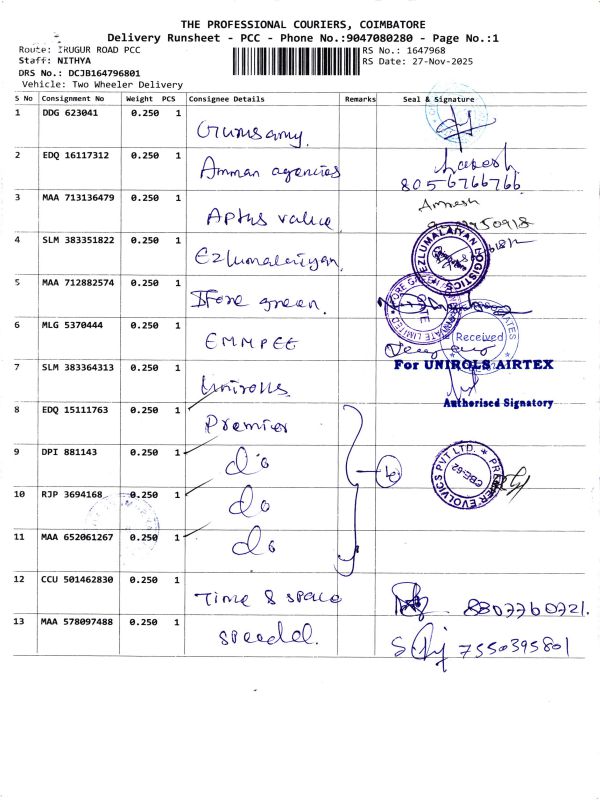 THE PROFESSIONAL COURIERS, COIMBATORE
Delivery Runsheet - PCC - Phone No.:9047080280 - Page No.:1
Route: IRUGUR ROAD PCC
RS No.: 1647968
Staff: NITHYA
RS Date: 27-Nov-2025
DRS No.: DCJB164796801
Vehicle: Two Wheeler Delivery
S No Consignment No Weight PCS Consignee Details Remarks Seal & Signature
1 DDG 623041 0.250 1 Gurusamy
2 EDQ 16117312 0.250 1 Amman agencies Lokesh
8056766766
3 MAA 713136479 0.250 1 Aptus value
4 SLM 383351822 0.250 1 Ezlumalaiyan EZLUMALAIYAN LOGISTICS
5 MAA 712882574 0.250 1 Store green
6 MLG 5370444 0.250 1 EMMPEE Received
7 SLM 383364313 0.250 1 Unirolls For UNIROLS AIRTEX
Authorised Signatory
8 EDQ 15111763 0.250 1 Premier
9 DPI 881143 0.250 1 do PREMIER EVOLVICS PVT LTD. CBE-62
10 RJP 3694168 0.250 1 do
11 MAA 652061267 0.250 1 do
12 CCU 501462830 0.250 1 Time & space 8807760721.
13 MAA 578097488 0.250 1 speedel. 7550395801